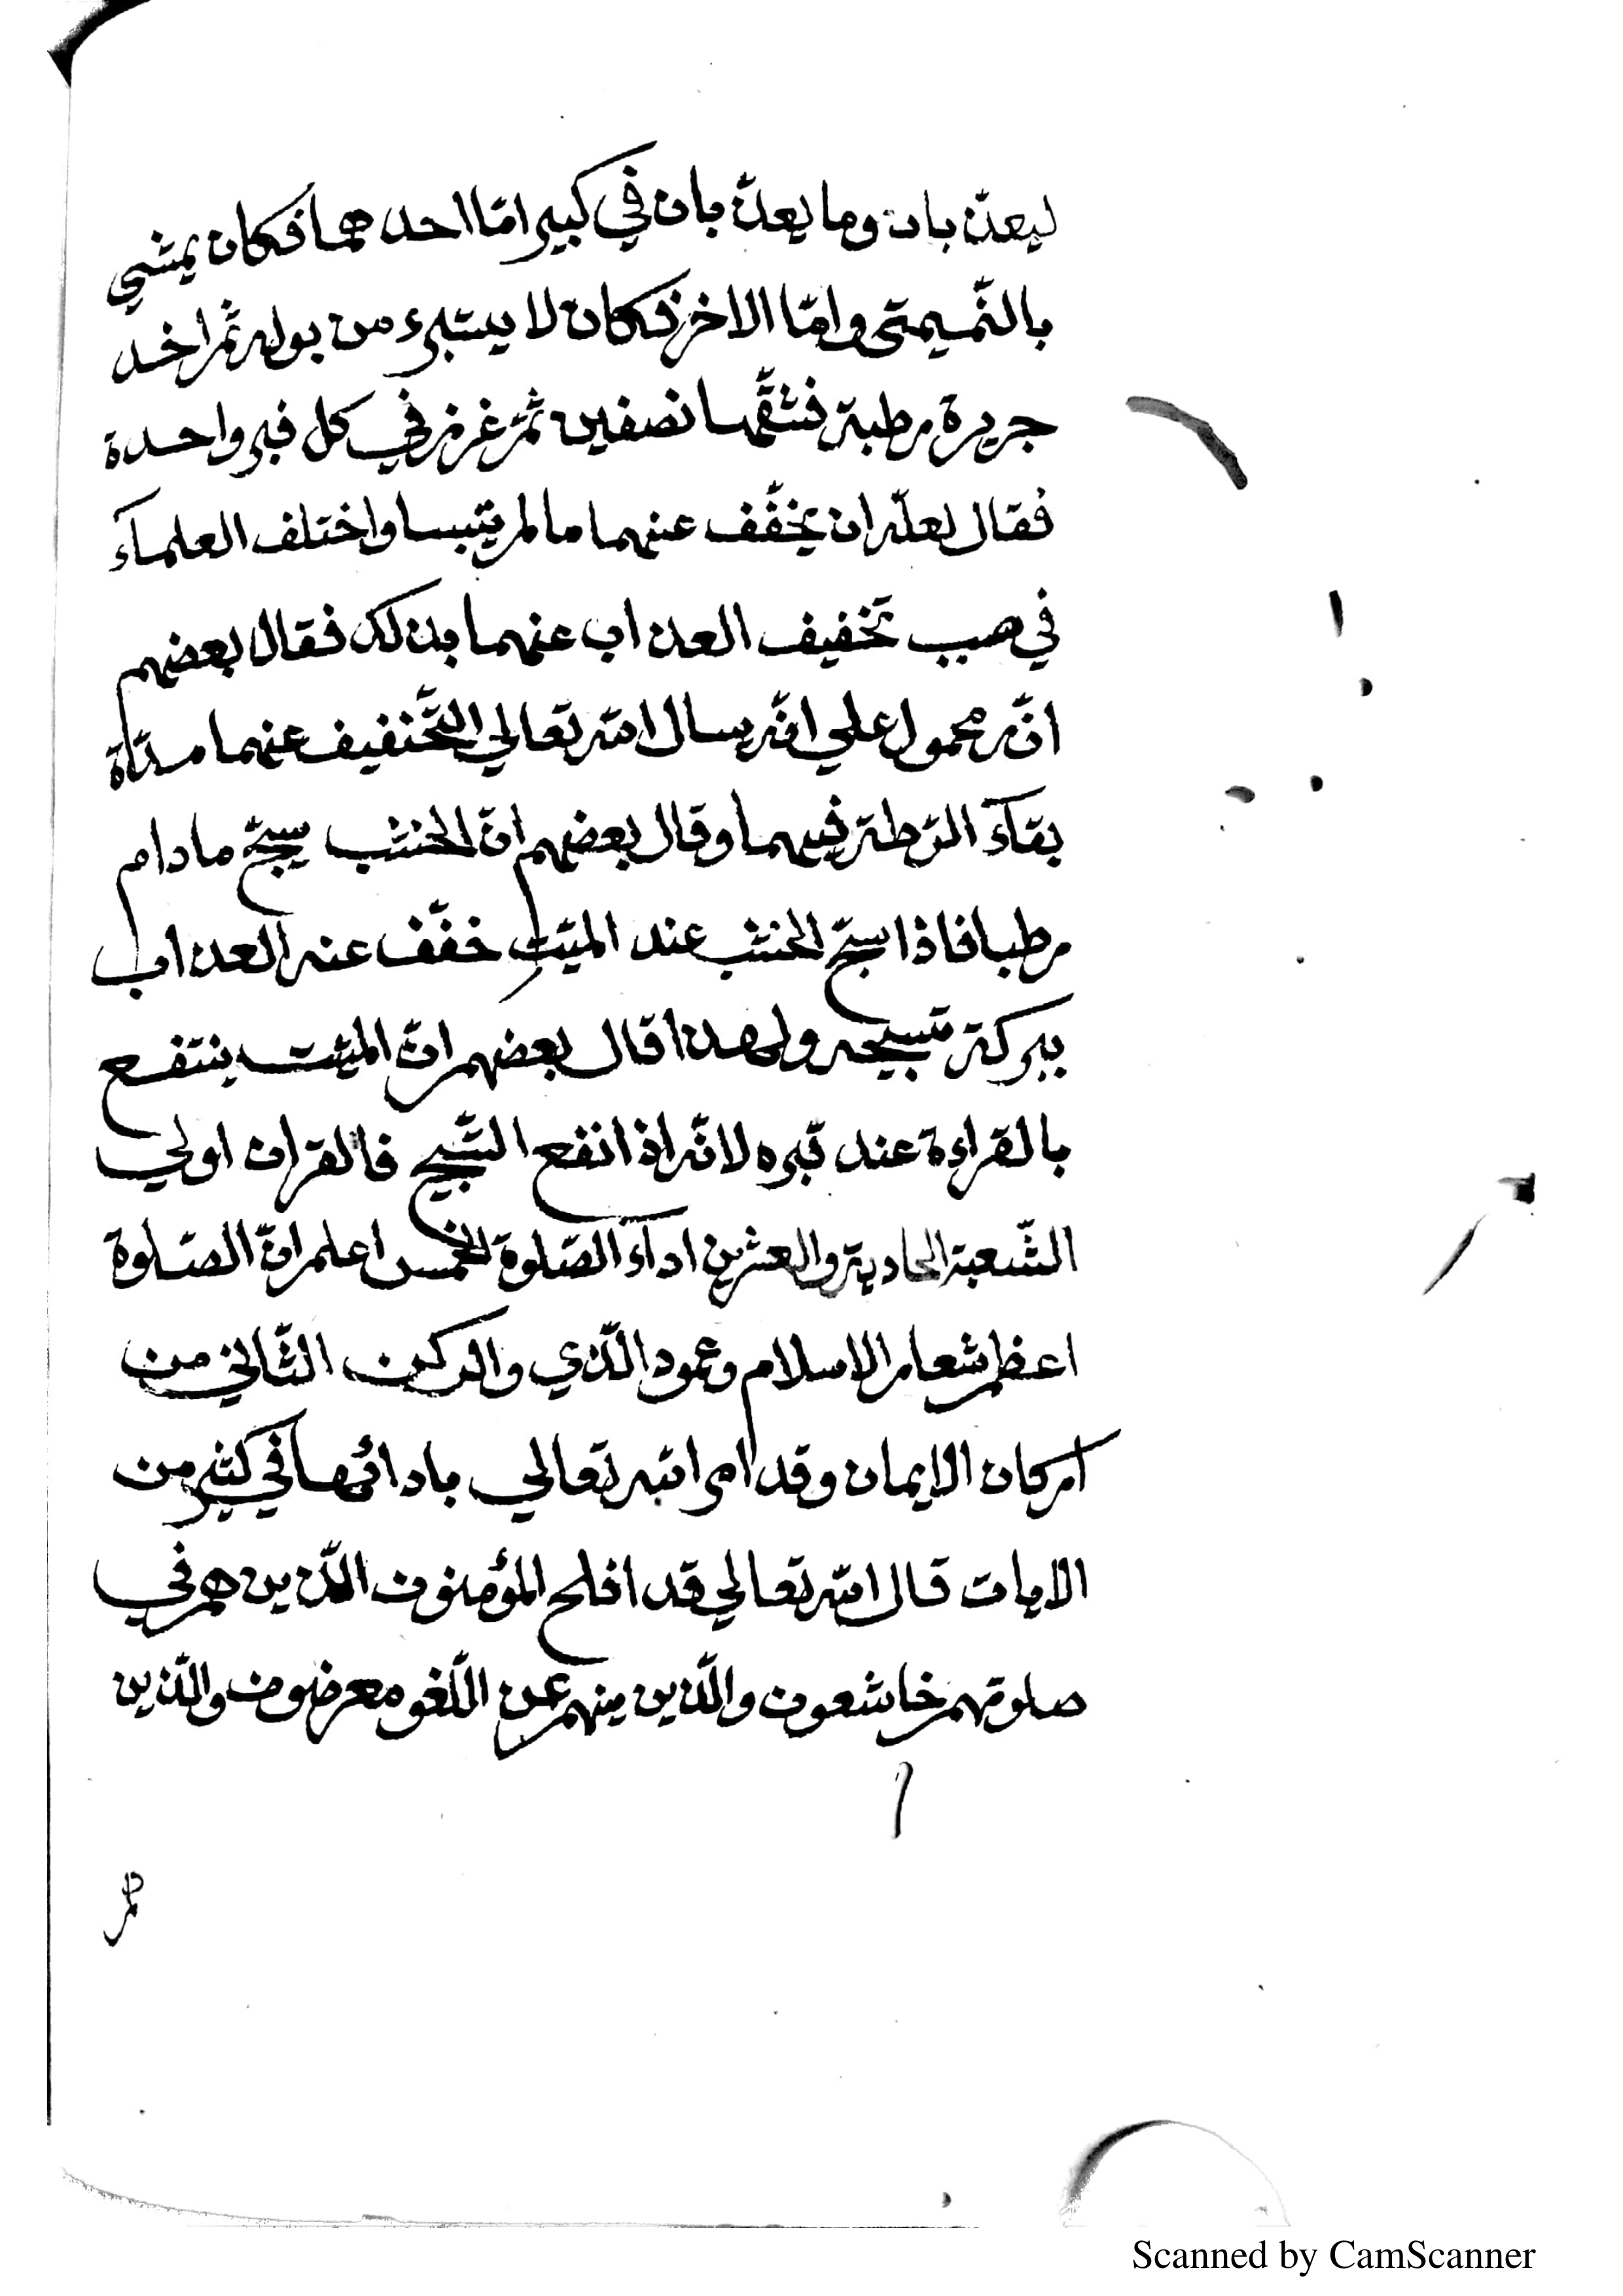 ليعذّبان وما يعذّبان في كبير امّا احدهما فكان يمشي
بالنّميمتى وامّا الاخر فكان لا يستبرء من بوله ثمّ اخذ
جريرة رطبة فشقّها نصفين ثمّ غرز في كل قبر واحدة
فقال لعلّه ان يخفّف عنهما ما لم ييبسا واختلف العلمآء
في صبب تخفيف العذاب عنهما بذلك فقال بعضهم
انّه محمول علي انّه سال الله تعالي التّخفيف عنهما مدّة
بقآء الرّطبة فيهما وقال بعضهم انّ الخشب يسبّح مادام
رطبا فاذا سبّح الخشب عند الميّتِ خفّف عنه العذاب
ببركة تسبيحه ولهذا قال بعضهم انّ الميّت ينتفع
بالقراءة عند قبره لانّه اذا انفع التّسبيح فالقران اولي
الشّعبة الحادية والعشرين ادآء الصّلوة الخمس اعلم انّ الصّلوة
اعظم شعاىر الاسلام وعمود الدّي والركن الثّاني من
اركان الايمان وقد امر الله تعالي بادائها في كثير من
الايات قال الله تعالي قد افلح المؤمنون الّذين هم في
صلوتهم خاشعون والّذين منهم عن اللّغو معرضون والّذين
هم
Scanned by CamScanner